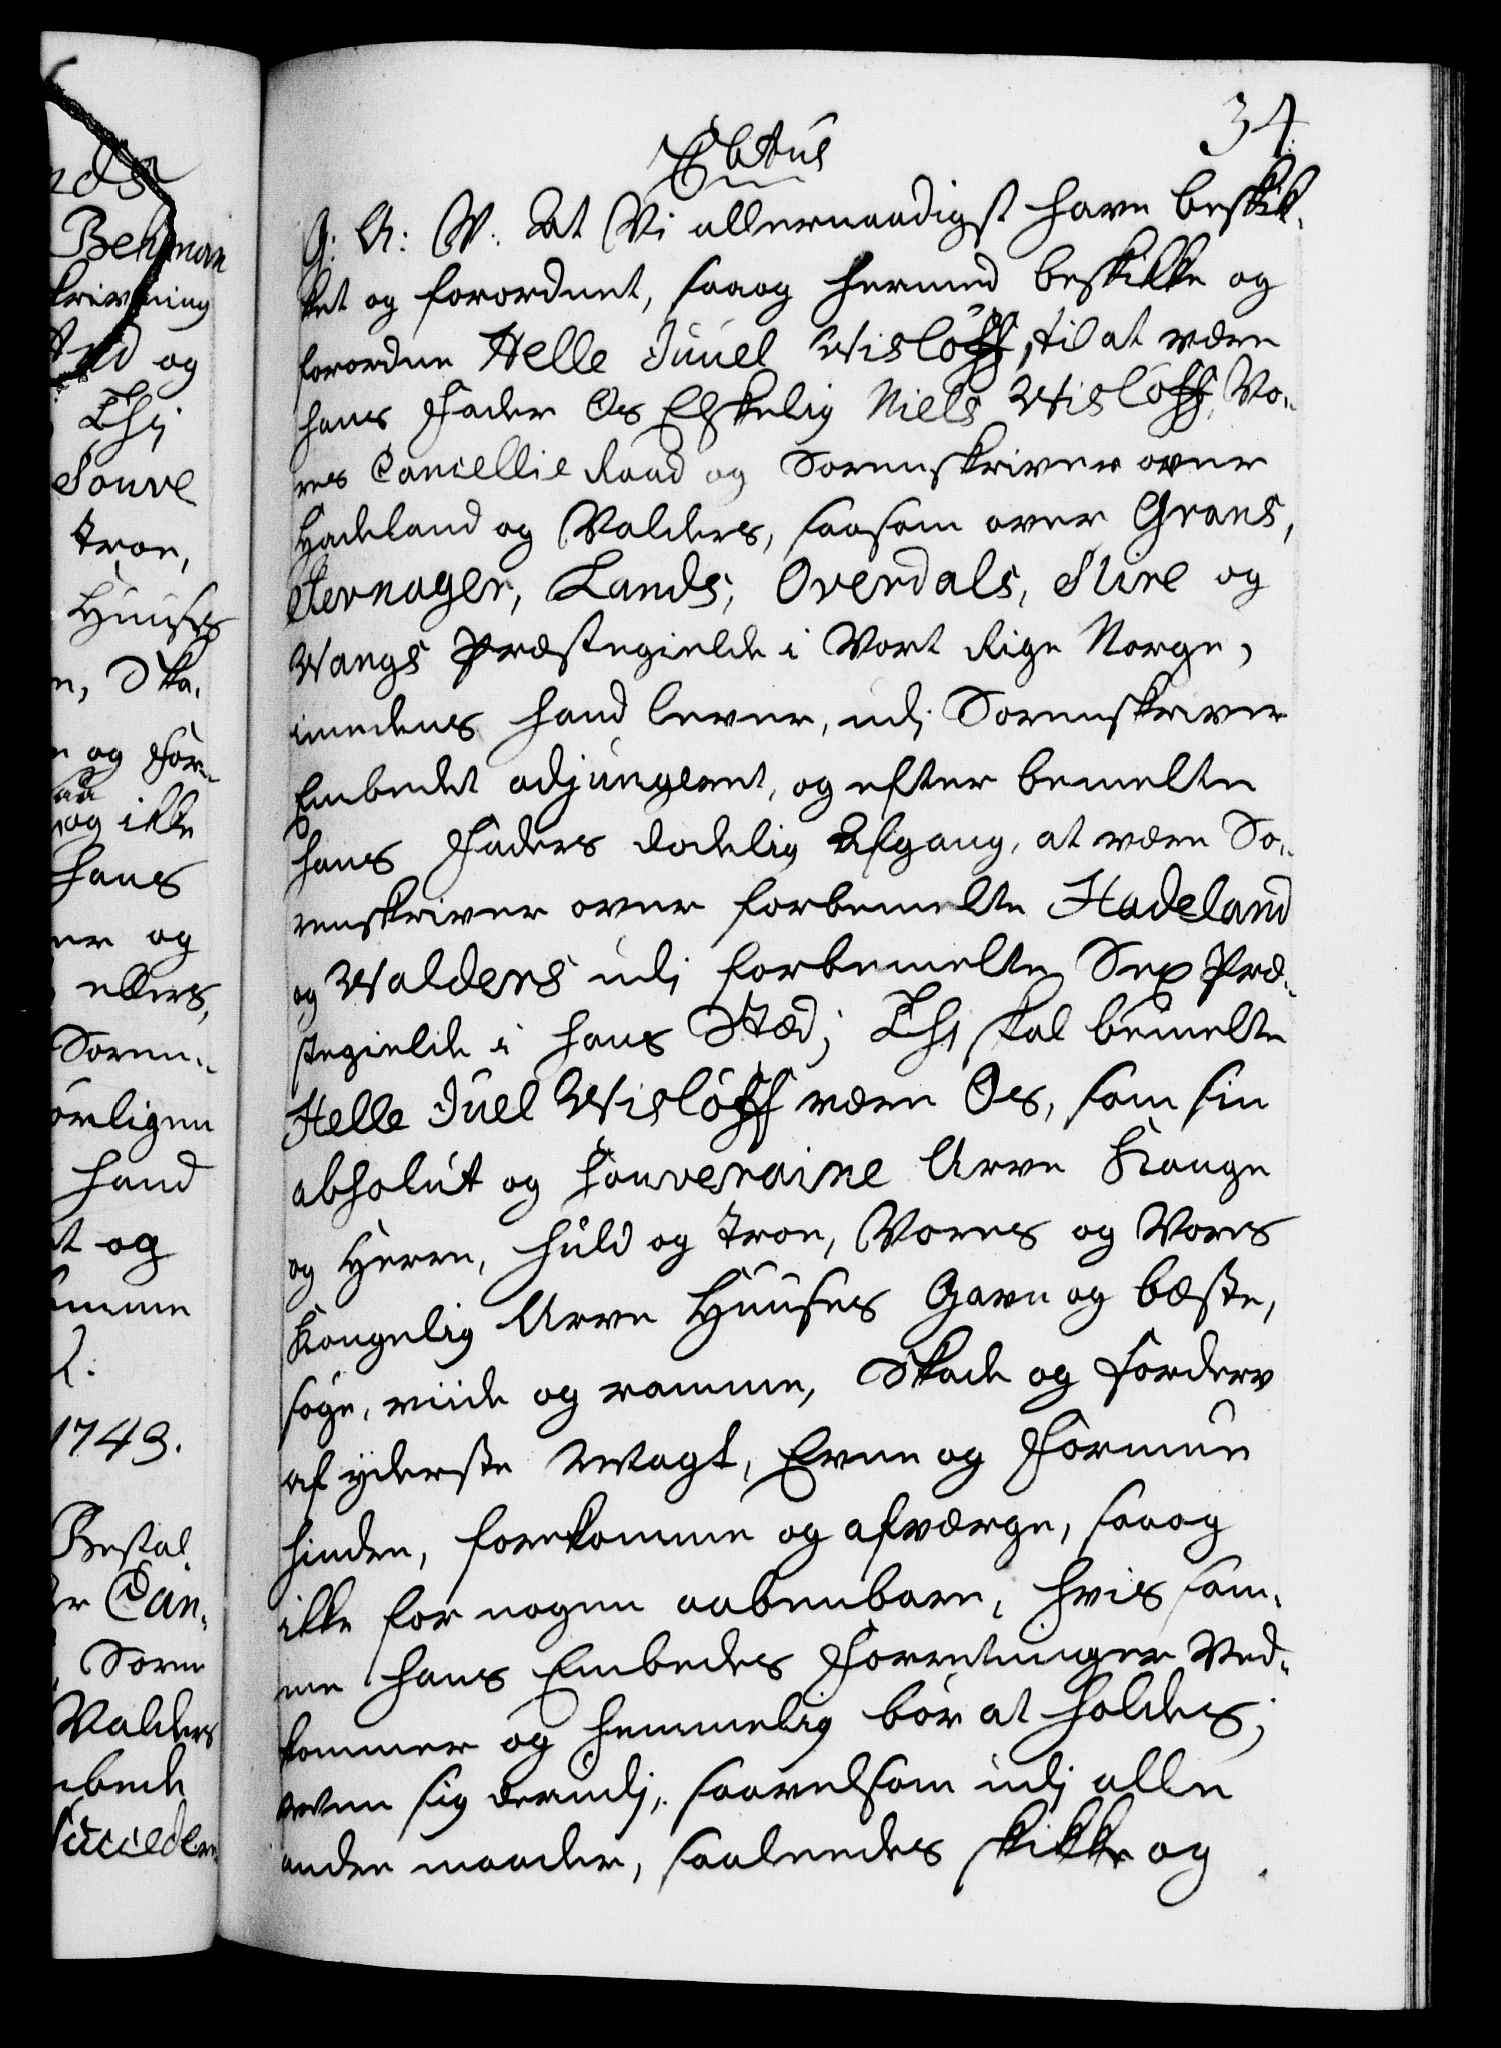 34.
G: A: V. At Vi allernaadigst have beskik-
ket og forordnet, saa og hermed beskikke og
forordne Helle Juuel Wisløff, til at være
hans Fader Os Elskelig Niels Wisløff, Vo-
res Cancellie Raad og Sorenskriver over
Hadeland og Valders, saasom over Grans,
Jevnager, Lands, Overdals, Slire og
Wangs Præstegielde i Vort Rige Norge,
imedens hand lever, udj Sorenskriver
Embedet adjungeret, og efter bemelte
hans Faders dødelig Afgang, at være So-
renskriver over forbemelte Hadeland
og Walders udj forbemelte Sex Præ-
stegielde i hans Stæd; Thj skal bemelte
Helle Juel Wisløff være Os, som sin
absolut og souveraine Arve Konge
og Herre, huld og troe, Vores og Vores
Kongelig Arve Huuses Gavn og bæste,
søge, viide og ramme, Skade og Forderv
af yderste Magt, Evne og Formue
hindre, forekomme og afværge, saa og
ikke for nogen aabenbare, hvis sam-
me hans Embedes Forretninger Ved-
kommer og hemmelig bør at holdes;
Men sig derudj, saavelsom udj alle
andre maader, saaleedes skikke og
Behman
krivning
og
Thj
Souve
troe,
Huuses
Ska-
og For-
saa
og ikke
hans
og
ellers,
Soren-
hand
og
1743.
Bestal
Can-
Soren
Valders
succeder